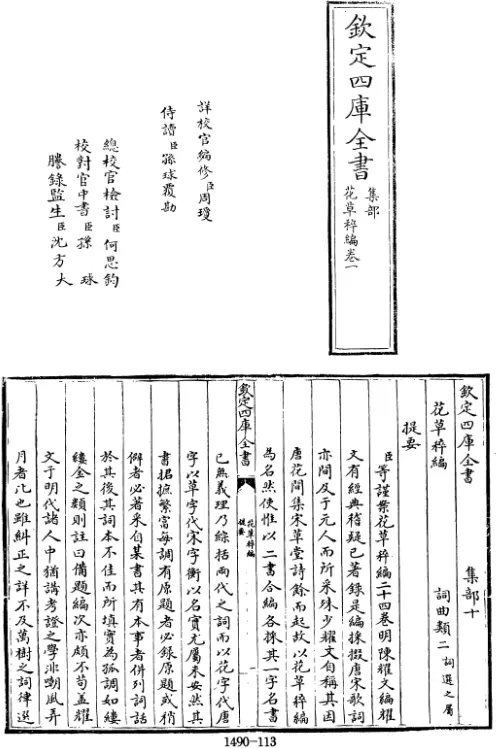 欽定四庫全書
集部
花草稡編卷一
詳校官編修臣周瓊
侍讀臣孫球覆勘
總校官檢討臣何思鈞
校對官中書臣孫球
謄錄監生臣沈方大
欽定四庫全書 集部十
花草稡編 詞曲類二 詞選之屬
提要
臣等謹案花草稡編二十四卷明陳耀文編耀
文有經典稽疑已著錄是編採掇唐宋歌詞
亦間及于元人而所采殊少耀文自稱其因
唐花間集宋草堂詩餘而起故以花草稡編
為名然使惟以二書合編各採其一字名書
欽定四庫全書
花草稡編
提要
已無義理乃綜括兩代之詞而以花字代唐
字以草字代宋字衡以名實尤屬未安然其
書捃摭繁富每調有原題者必錄原題或稍
僻者必著采自某書其有本事者併列詞話
於其後其詞本不佳而所填實為孤調如縷
縷金之類則註曰備題編次亦頗不苟蓋耀
文于明代諸人中猶講考證之學非嘲風弄
月者比也雖糾正之詳不及萬樹之詞律選
1490-113